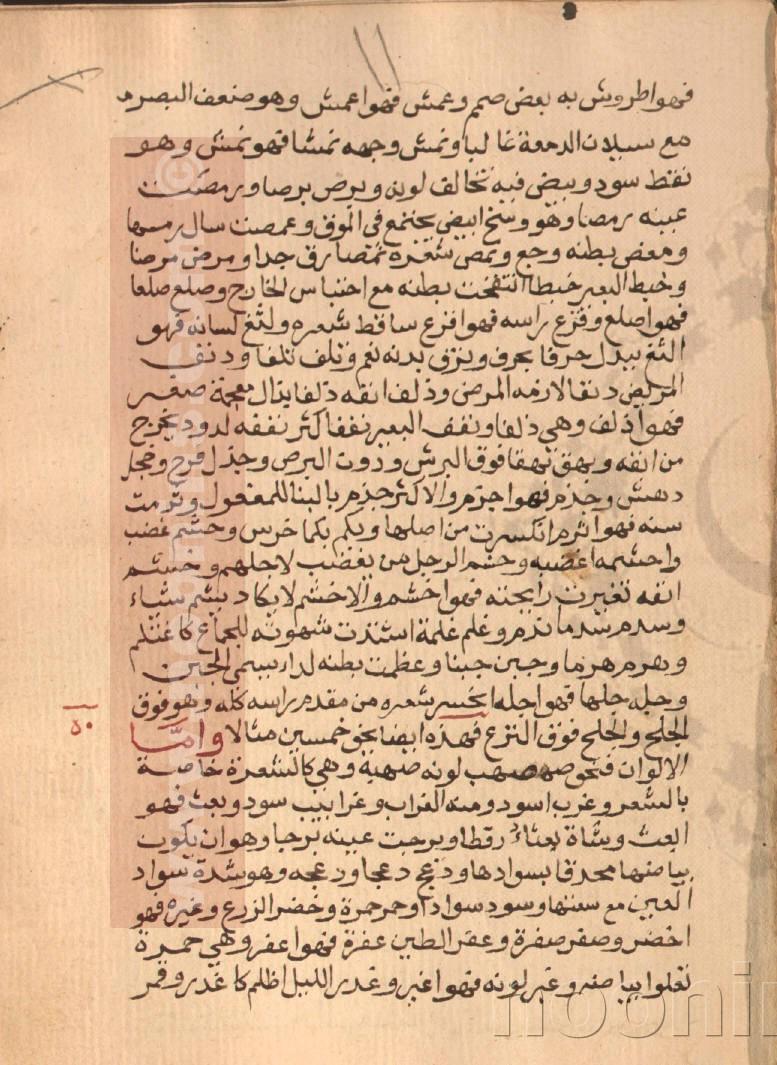 فهو اطروش به بعض صمم وعمش فهو اعمش وهو ضعف البصر
مع سيلان الدمعة غالبا ونمش وجهه نمشا فهو نمش وهو
نقط سود وبيض فيه تخالف لونه وبرص برصا ورمصت
عينه رمصا وهو وسخ ابيض يجتمع في الموق وعمصت سال رمصها
ومغص بطنه وجع ونمص شعره نمصا رق جدا ومرض مرضا
وحبط البعير حبطا انتفخت بطنه مع احتباس الخارج وصلع صلعا
فهو اصلع وقزع راسه فهو اقزع ساقط شعره ولثغ لسانه فهو
الثغ يبدل حرفا بحرف ونزق بدنه نعم وتلف تلفا ودنف
المريض دنفا لازمه المرض وذلف انفه ذلفا بذال معجمة صغر
فهو اذلف وهي ذلفا ونغف البعير نغفا كثر نغفه لدود يخرج
من انفه وبهق بهقا فوق البرش ودون البرص وجذل فرح وخجل
دهش وجذم فهو اجذم والاكثر جذم بالبنا للمفعول وثرمت
سنه فهو اثرم انكسرت من اصلها وبكم بكما خرس وحشم غضب
واحشمه اغضبه وحشم الرجل من يغضب لاجلهم وخشم
انفه تغيرت رايحته فهو اخشم والاخشم لا يكاد يشم شياء
وسدم ندم وغلم غلمة اشتدت شهوته للجماع كاغتلم
وهرم هرما وجبن جبنا وعظمت بطنه لداء يسمى الجبن
وجله جلها فهو اجله انحسر شعره من مقدم راسه كله وهو فوق
الجلح والجلح فوق النزع فهذه ايضا نحو خمسين مثالا واما
٥٠
الالوان فنحو صهب لونه صهبة وهي كالشقرة خاصة
بالشعر وغرب اسود ومنه الغراب وغرابيب سود وبعث فهو
ابعث وشاة بعثاء رقطا وبرجت عينه برجا وهو ان يكون
بياضها محدقا بسوادها ودعج دعجا ودعجه وهو شدة سواد
العين مع سعتها وسود سوادا وحمر حمرة وخضر الزرع وغيره فهو
اخضر وصفر صفرة وعفر الطين عفرة فهو اعفر وهي حمرة
تعلوا بياضه وغبر لونه فهو اغبر وغدر الليل اظلم كاغدر وقمر